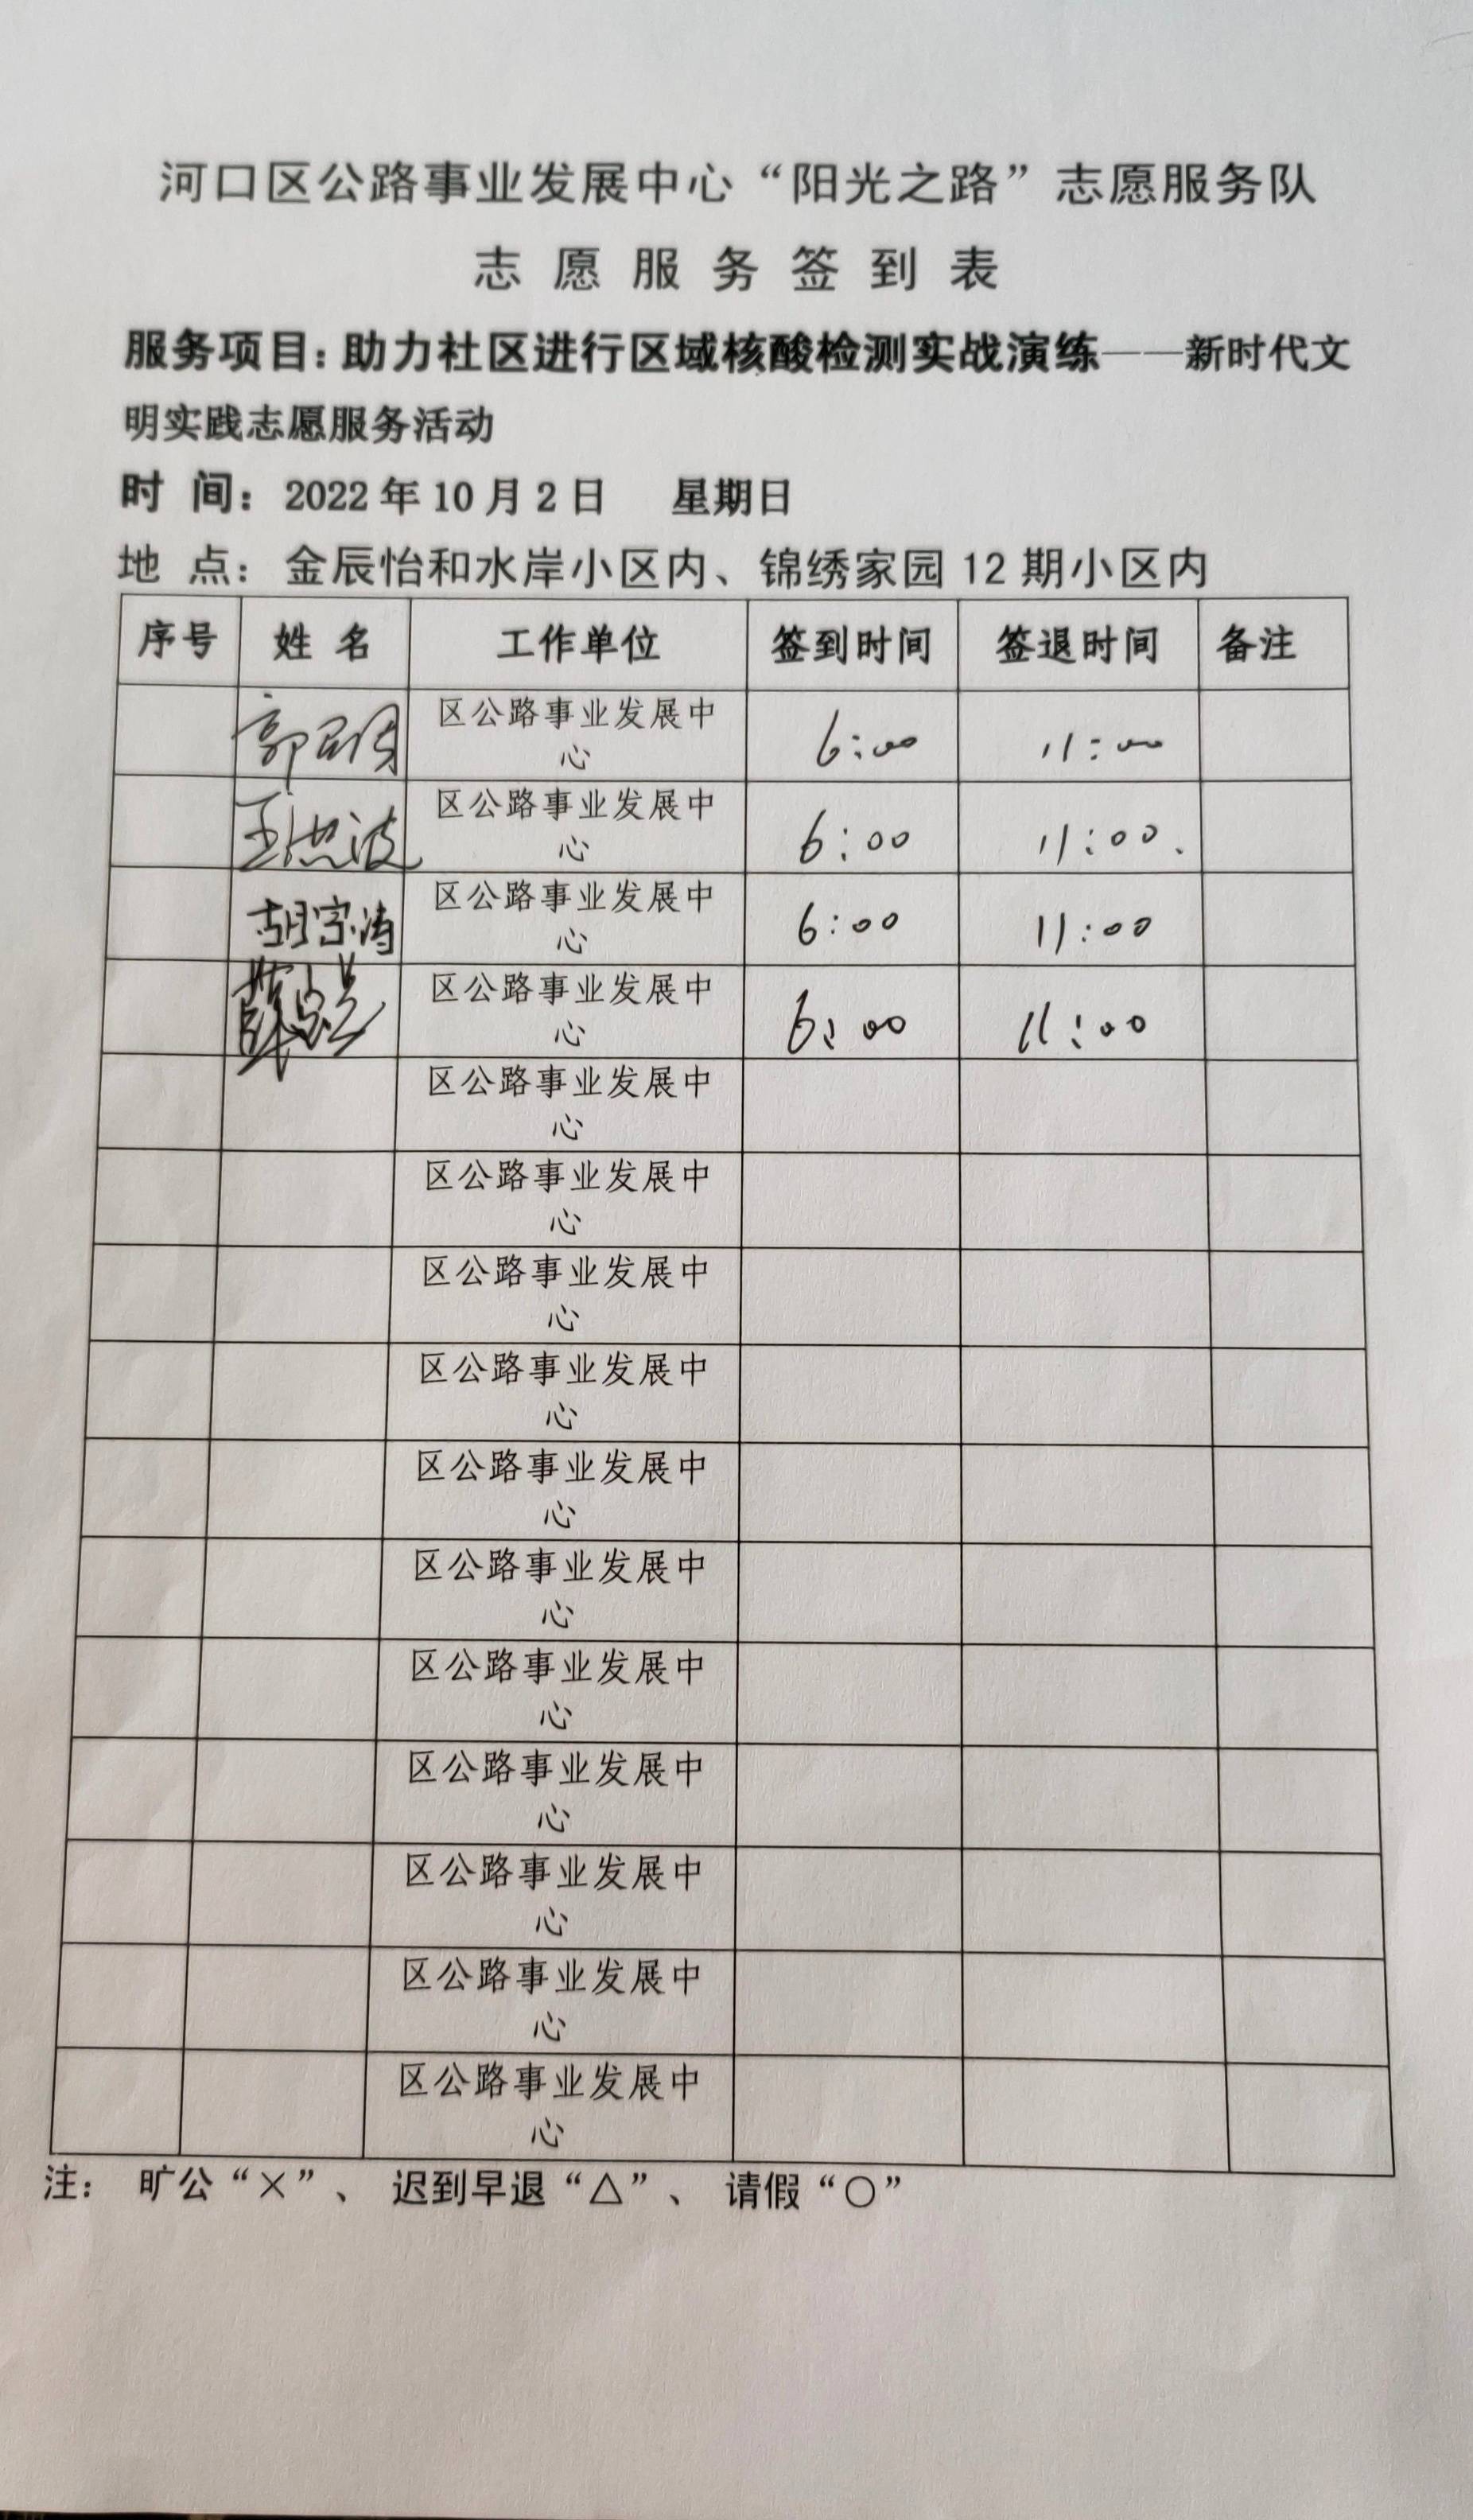 河口区公路事业发展中心“阳光之路”志愿服务队
志 愿 服 务 签 到 表
服务项目：助力社区进行区域核酸检测实战演练——新时代文
明实践志愿服务活动
时 间：2022年10月2日 星期日
地 点：金辰怡和水岸小区内、锦绣家园12期小区内
序号 姓 名 工作单位 签到时间 签退时间 备注
区公路事业发展中
心 6:00 11:00
区公路事业发展中
心 6:00 11:00
胡宗涛 区公路事业发展中
心 6:00 11:00
区公路事业发展中
心 6:00 11:00
区公路事业发展中
心
区公路事业发展中
心
区公路事业发展中
心
区公路事业发展中
心
区公路事业发展中
心
区公路事业发展中
心
区公路事业发展中
心
区公路事业发展中
心
区公路事业发展中
心
区公路事业发展中
心
区公路事业发展中
心
注： 旷公“×”、 迟到早退“△”、 请假“○”